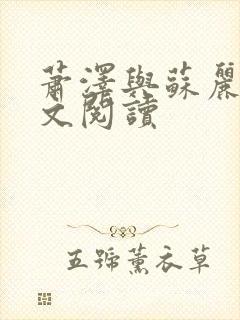 蕭澤與蘇麗
文閱讀
五號薰衣草